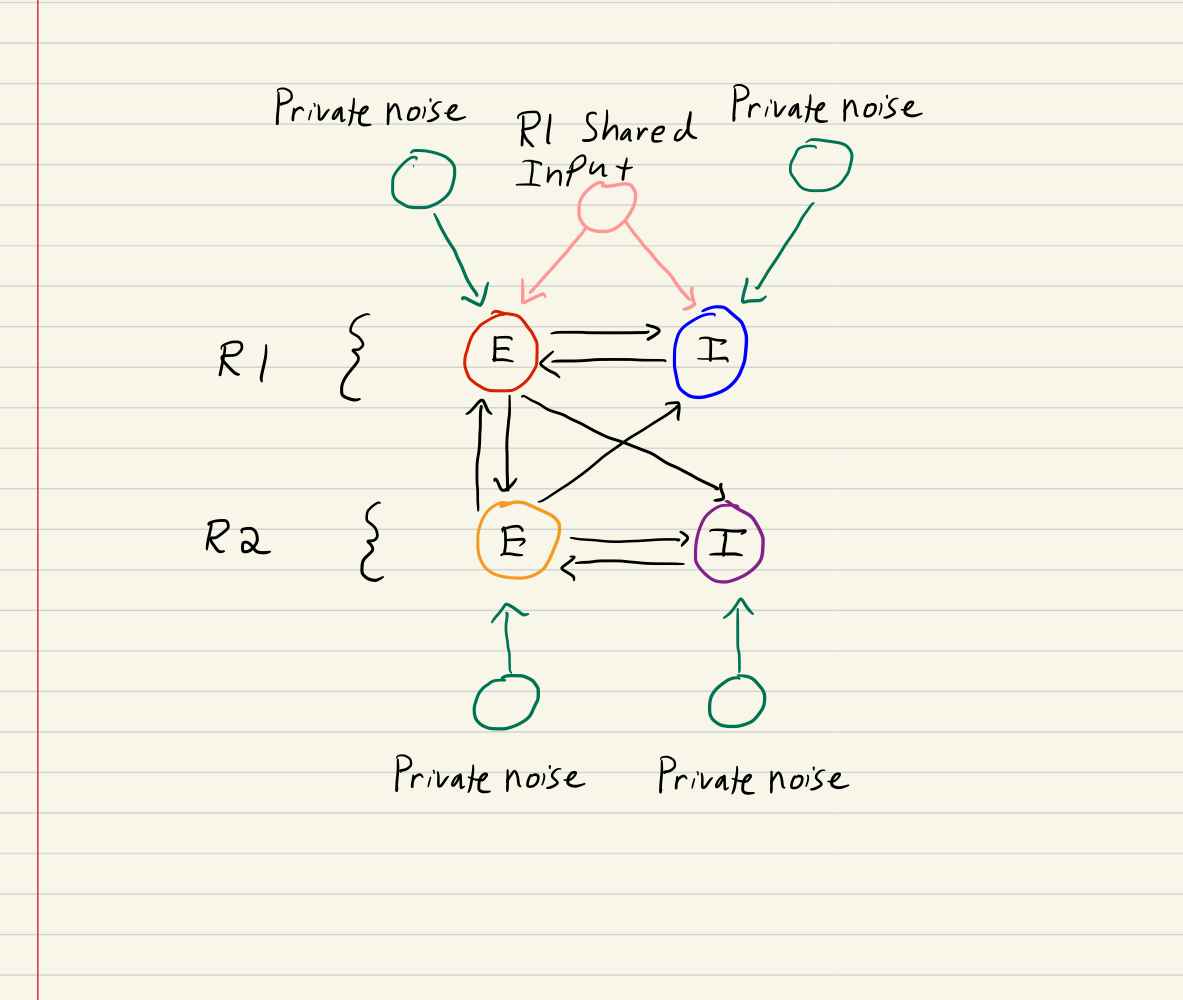 Private noise
R1 Shared
Input
Private noise
R1 { E I
R2 { E I
Private noise
Private noise